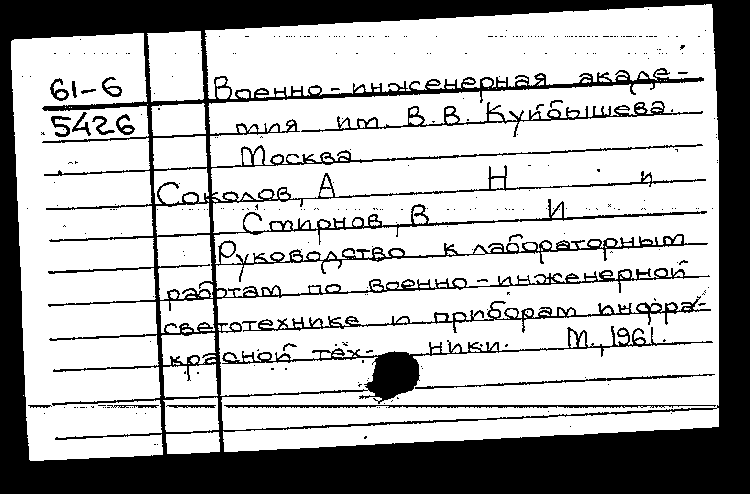 61-6 Военно-инженерная акаде-
5426 мия им. В.В. Куйбышева.
Москва
Соколов, А Н и
Смирнов, В И
Руководство к лабораторным
работам по военно-инженерной
светотехнике и приборам инфра-
красной тех- ники. М., 1961.